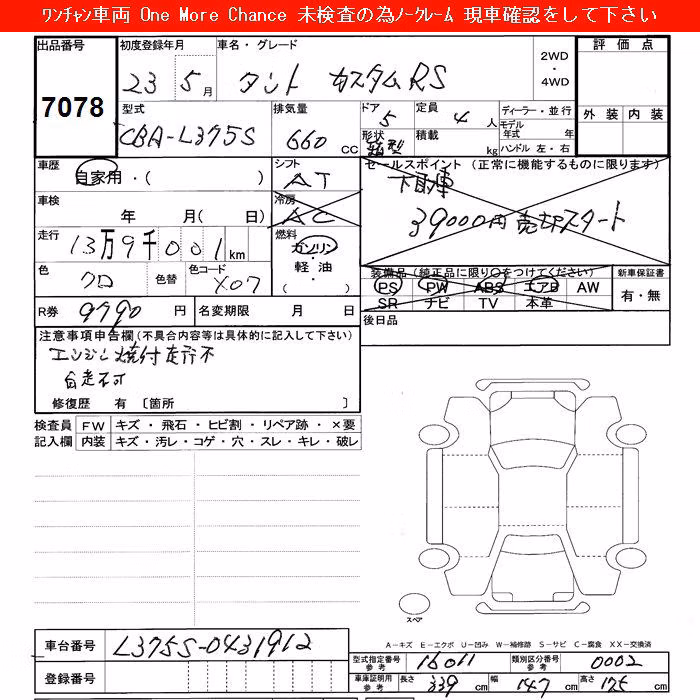 ワンチャン車両 One More Chance 未検査の為ノークレーム 現車確認をして下さい
出品番号 初度登録年月 車名・グレード 2WD ・ 4WD 評価点
7078 23 5月 タント カスタムRS
型式 排気量 ドア 5 定員 4人 ディーラー・並行 外装 内装
CBA-L375S 660 CC 形状 箱型 積載 kg モデル年式 年
ハンドル 左・右
車歴 自家用・( ) シフト AT セールスポイント (正常に機能するものに限ります)
下取車
車検 年 月( 日) 冷房 AC 39000円売却スタート
走行 13万9千001km 燃料 ガソリン
軽油
・( )
色 クロ 色替 色コード X07 装備品(純正品に限り○をつけてください) 新車保証書
PS PW ABS エアB AW 有・無
SR ナビ TV 本革
R券 9790円 名変期限 月 日 後日品
注意事項申告欄(不具合内容等は具体的に記入して下さい)
エンジン焼付走行不
自走不可
修復歴 有 〔箇所 〕
検査員 FW キズ・飛石・ヒビ割・リペア跡・×要
記入欄 内装 キズ・汚レ・コゲ・穴・スレ・キレ・破レ
スペア
A-キズ E-エクボ U-凹み W-補修跡 S-サビ C-腐食 XX-交換済
車台番号 L375S-0431912
型式指定番号 参考 16011 類別区分番号 参考 0002
登録番号 車庫証明用 参考 長さ 339cm 幅 147cm 高さ 175cm